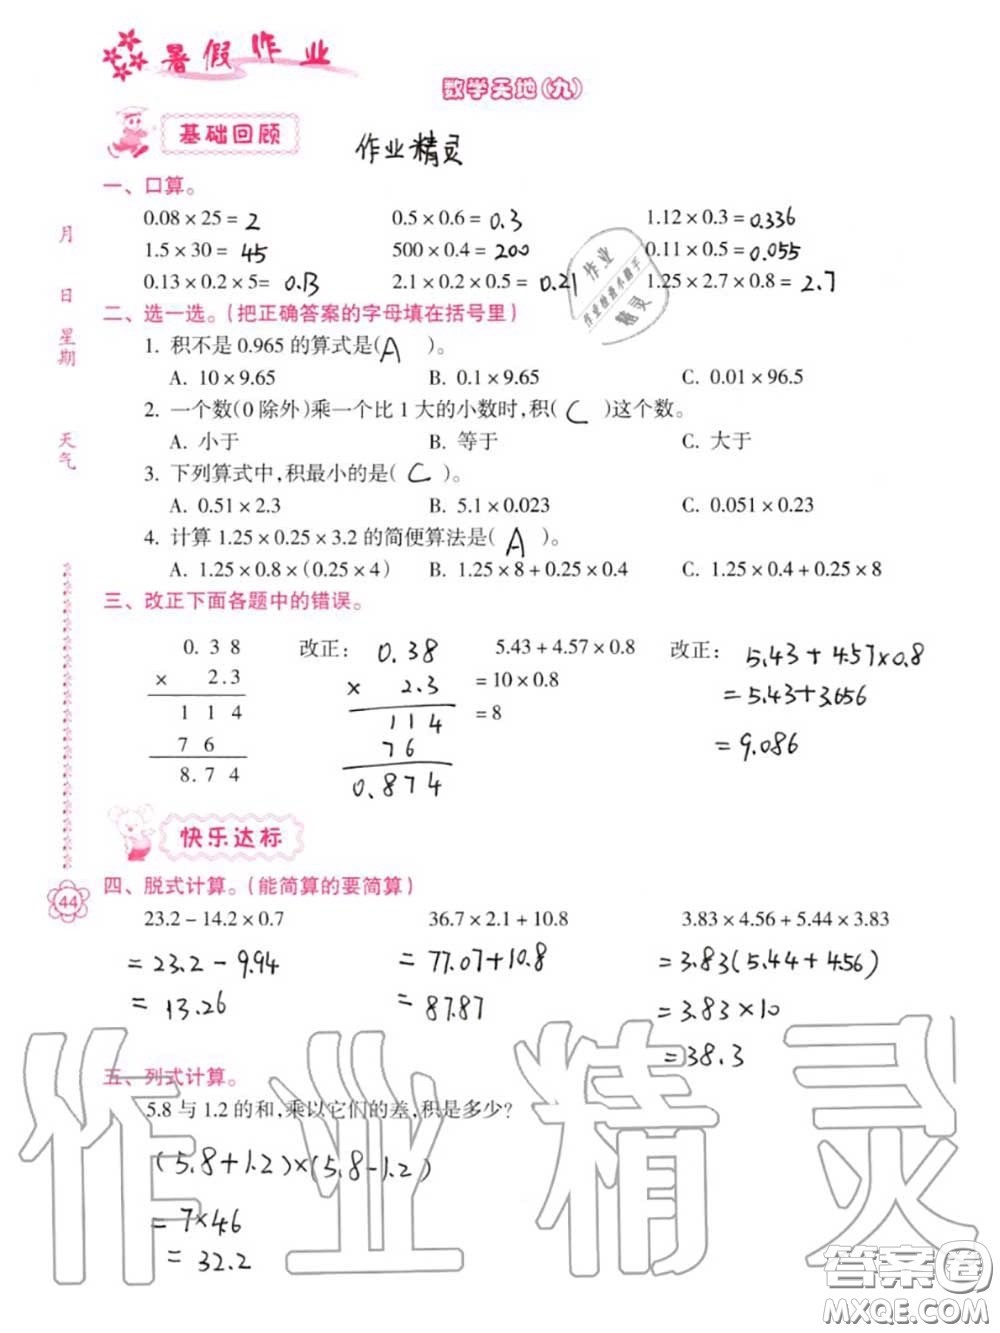 暑假作业
数学天地(九)
基础回顾
作业精灵
一、口算。
0.08×25= 2 0.5×0.6= 0.3 1.12×0.3= 0.336
1.5×30= 45 500×0.4= 200 0.11×0.5= 0.055
0.13×0.2×5= 0.13 2.1×0.2×0.5= 0.21 1.25×2.7×0.8= 2.7
作业
作业检查小助手
精灵
月
日
星期
天气
二、选一选。(把正确答案的字母填在括号里)
1. 积不是0.965的算式是( A )。
A. 10×9.65 B. 0.1×9.65 C. 0.01×96.5
2. 一个数(0除外)乘一个比1大的小数时,积( C )这个数。
A. 小于 B. 等于 C. 大于
3. 下列算式中,积最小的是( C )。
A. 0.51×2.3 B. 5.1×0.023 C. 0.051×0.23
4. 计算1.25×0.25×3.2的简便算法是( A )。
A. 1.25×0.8×(0.25×4) B. 1.25×8+0.25×0.4 C. 1.25×0.4+0.25×8
三、改正下面各题中的错误。
0.38 改正: 0.38 5.43+4.57×0.8 改正: 5.43+4.57×0.8
× 2.3 × 2.3 =10×0.8 =5.43+3.656
114 114 =8
76 76 =9.086
8.74 0.874
快乐达标
四、脱式计算。(能简算的要简算)
44
23.2-14.2×0.7 36.7×2.1+10.8 3.83×4.56+5.44×3.83
=23.2-9.94 =77.07+10.8 =3.83(5.44+4.56)
=13.26 =87.87 =3.83×10
=38.3
五、列式计算。
5.8与1.2的和,乘以它们的差,积是多少?
(5.8+1.2)×(5.8-1.2)
=7×4.6
=32.2
作业精灵
答案圈
MXQE.COM